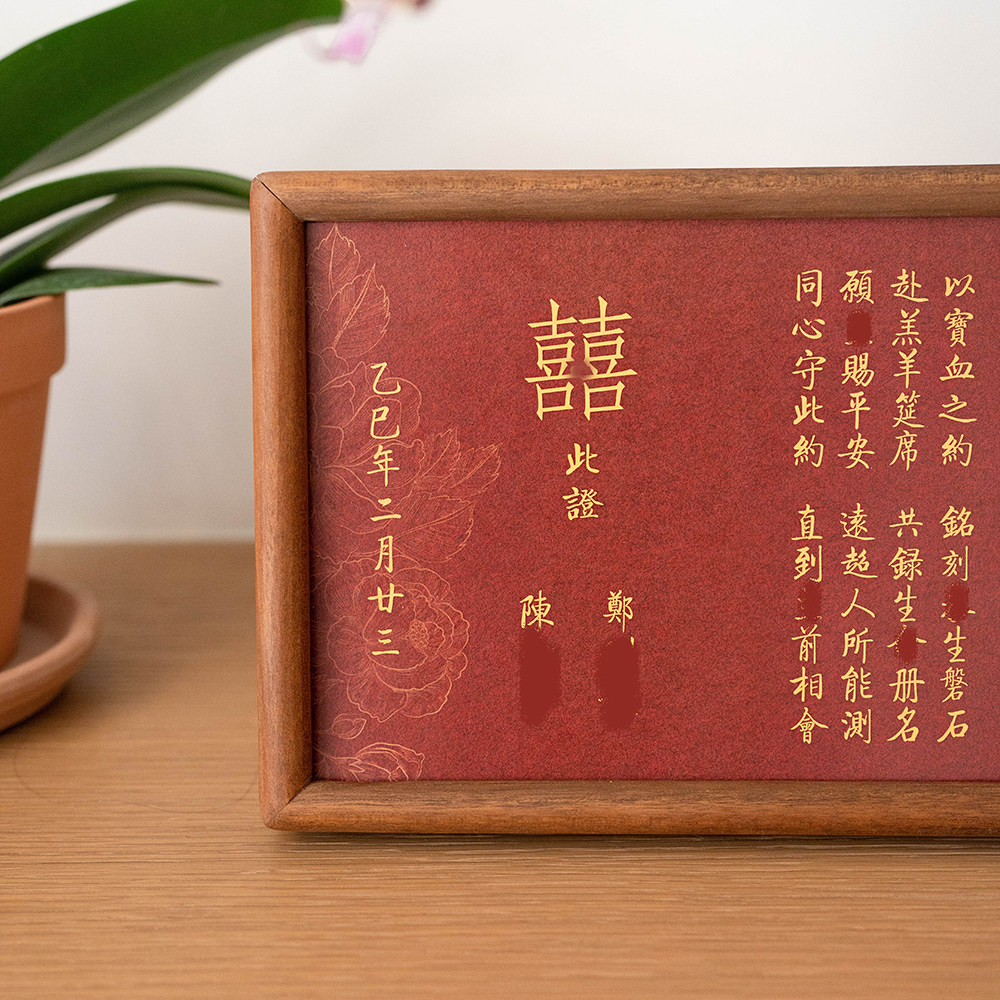 以寶血之約 銘刻生磐石
赴羔羊筵席 共録生册名
願賜平安 遠超人所能測
同心守此約 直到前相會
囍
此證
鄭
陳
乙巳年二月廿三